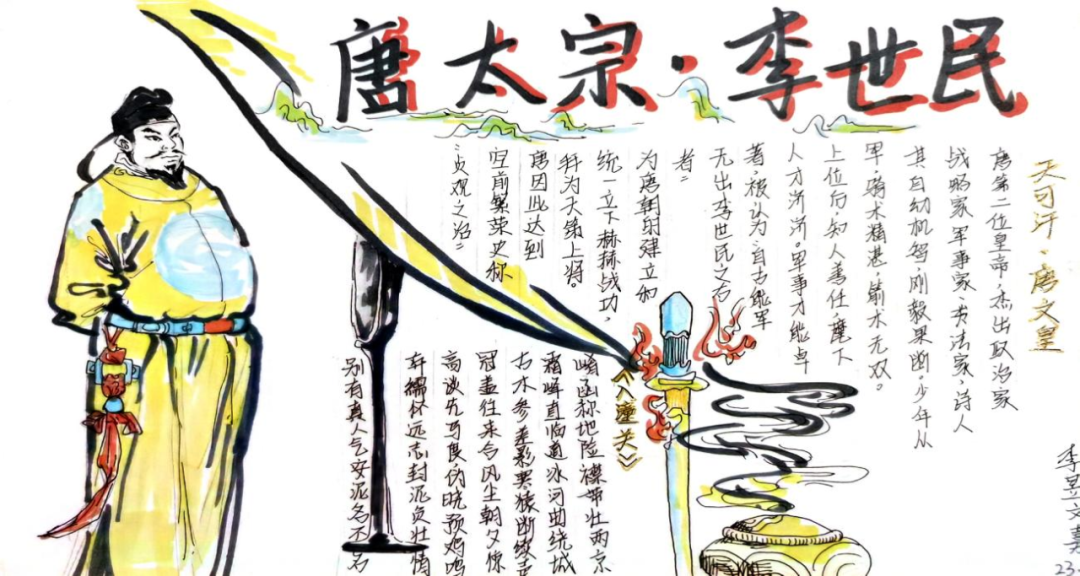 唐太宗·李世民
天可汗·唐文皇
唐第二位皇帝,杰出政治家
战略家、军事家、书法家、诗人
其自幼机智,刚毅果断,少年从
军,骑术精湛,箭术无双。
上位后,知人善任,麾下
人才济济。军事才能卓
著,被认为"自古能军
无出李世民之右
者"
为唐朝的建立和
统一立下赫赫战功,
拜为天策上将。
唐因此达到
空前繁荣史称
"贞观之治"
《入潼关》
崤函称地险襟带壮两京
霜峰直临道冰河曲绕城
古木参差影寒猿断续声
冠盖往来合风尘朝夕惊
高谈先马良伪晓预鸡鸣
弃繻怀远志封泥负壮情
别有真人气安泥名不名
李昱文
23.